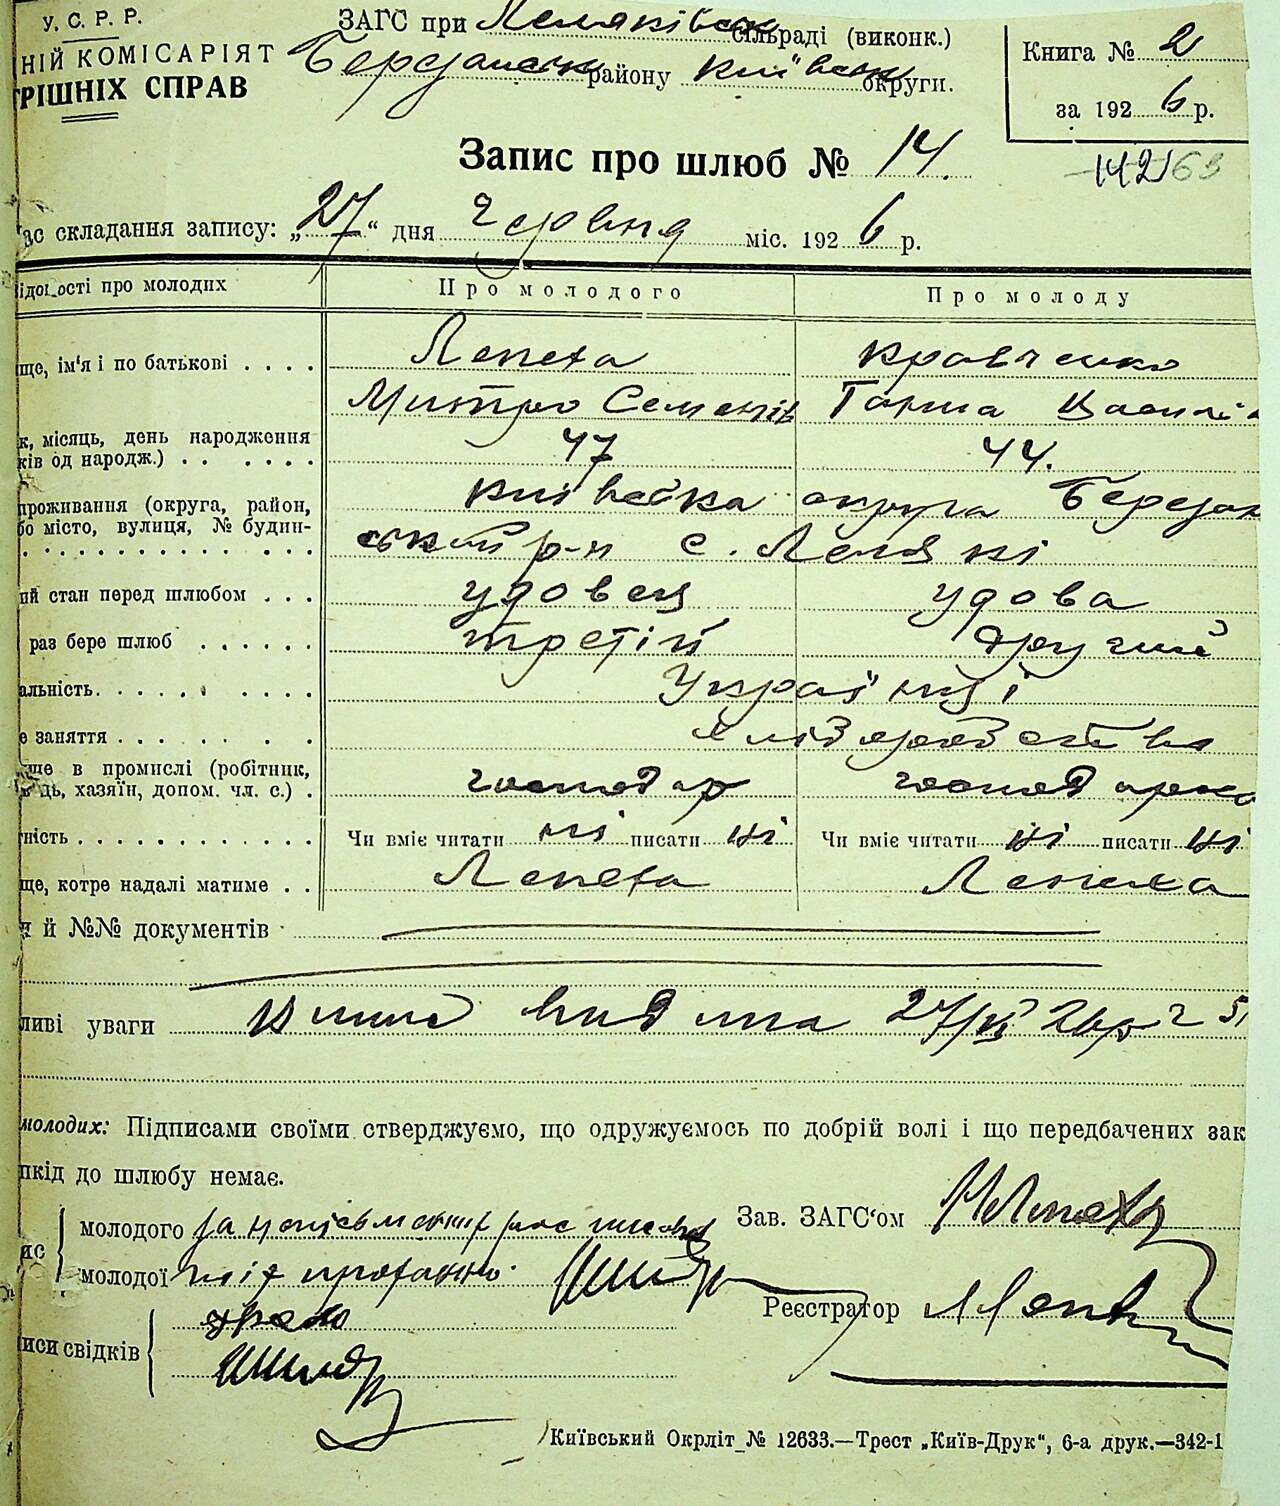 У. С. Р. Р.
НІЙ КОМІСАРІЯТ
РІШНІХ СПРАВ
ЗАГС при Леляківськ сільраді (виконк.)
Березанськ району Київськ округи.
Книга № 2
за 192 6 р.
Запис про шлюб № 14.
142 63
ас складання запису: „27“ дня Червня міс. 192 6 р.
ідомості про молодих Про молодого Про молоду
ще, ім'я і по батькові . . . . Лепеха Кравченко
Митро Семенів Ганна Василів
к, місяць, день народження
ків од народж.) . . . . . . 47 44.
проживання (округа, район, Київська округа Березан
бо місто, вулиця, № будин- ський р-н с. Леляки
ий стан перед шлюбом . . . удовец удова
раз бере шлюб . . . . . . третій другий
альність. . . . . . . . . . Українці
е заняття . . . . . . . . хліборобство
ще в промислі (робітник, господар
дь, хазяїн, допом. чл. с.) .
ність . . . . . . . . . . . . Чи вміє читати ні писати ні Чи вміє читати ні писати ні
ще, котре надалі матиме . . Лепеха Лепеха
й №№ документів
ливі уваги видана 27/VI 26 р
молодих: Підписами своїми стверджуємо, що одружуємось по добрій волі і що передбачених зак
пкід до шлюбу немає.
ис молодого за неписьменних
молодої їх проханню
Зав. ЗАГС‘ом
Реєстратор
иси свідків
Київський Окрліт № 12633.—Трест „Київ-Друк“, 6-а друк.—342-1